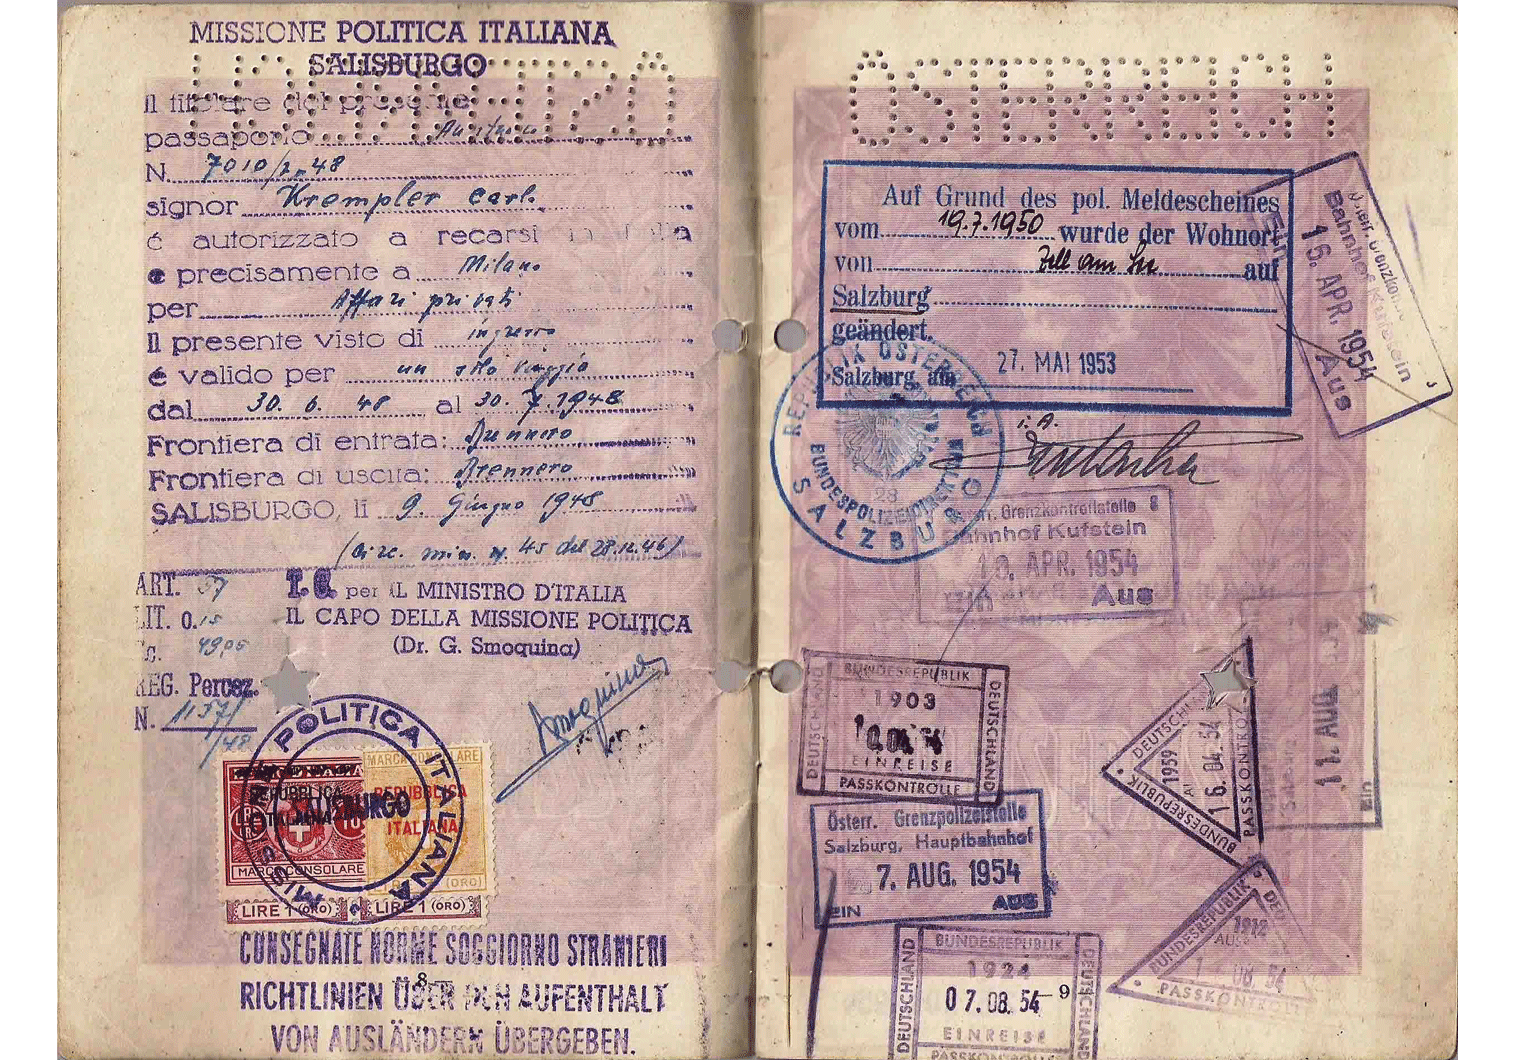 MISSIONE POLITICA ITALIANA
SALISBURGO
Il titolare del presente
passaporto
N. 7010/2.48
signor Krempler Carl.
é autorizzato a recarsi in Italia
e precisamente a Milano
per Affari privati
Il presente visto di ingresso
é valido per un solo viaggio
dal 30. 6. 48 al 30. 7. 1948
Frontiera di entrata: Brennero
Frontiera di uscita: Brennero
SALISBURGO, lí 9. Giugno 1948
(Circ. min. N. 45 del 28.12.46)
ART. 57
LIT. 0.15
REG. Percez.
N. 1157/
/48
per IL MINISTRO D'ITALIA
IL CAPO DELLA MISSIONE POLITICA
(Dr. G. Smoquina)
Smoquina
MISSIONE POLITICA ITALIANA
SALISBURGO
REPUBBLICA
ITALIANA
MARCA CONSOLARE
LIRE 1 (ORO)
MARCA CONSOLARE
REPUBBLICA
ITALIANA
(ORO)
LIRE 1 (ORO)
CONSEGNATE NORME SOGGIORNO STRANIERI
RICHTLINIEN ÜBER DEN AUFENTHALT
VON AUSLÄNDERN ÜBERGEBEN.
8
ÖSTERREICH
Auf Grund des pol. Meldescheines
vom 19.7.1950 wurde der Wohnort
von Zell am See auf
Salzburg
geändert.
Salzburg am 27. MAI 1953
i. A.
REPUBLIK ÖSTERREICH
BUNDESPOLIZEIDIREKTION
28
SALZBURG
Bahnhof Kufstein
16. APR. 1954
Ein
Aus
Grenzkontrollstelle 8
Bahnhof Kufstein
10. APR. 1954
Ein Aus
BUNDESREPUBLIK
DEUTSCHLAND
1903
EINREISE
DEUTSCHLAND
PASSKONTROLLE
DEUTSCHLAND
1959
16. 04. 54
BUNDESREPUBLIK
PASSKONTROLLE
11. AUG. 1954
Ein
Österr. Grenzpolizeistelle
Salzburg, Hauptbahnhof
7. AUG. 1954
EIN AUS
BUNDESREPUBLIK
DEUTSCHLAND
1924
07. 08. 54
EINREISE
DEUTSCHLAND
PASSKONTROLLE
BUNDESREPUBLIK
1912
08 54
PASSKONTROLLE
9